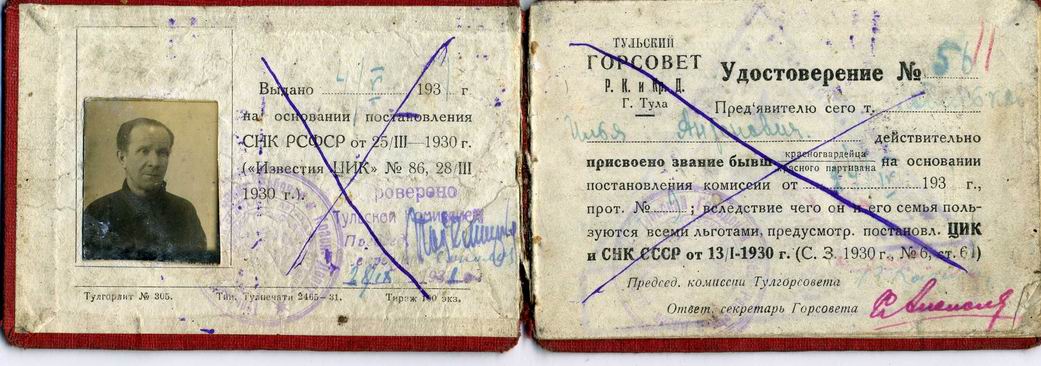 Выдано 193 г
на основании постановления
СНК РСФСР от 25/III—1930 г.
(«Известия ЦИК» № 86, 28/III
1930 г.).
Проверено
Тульской
Тулгорлит № 305. Тип. Тулпечати 2465—31. Тираж экз.
ТУЛЬСКИЙ
ГОРСОВЕТ
Р. К. и Кр. Д.
Г. Тула
Удостоверение № 56
Пред'явителю сего т.
Илья действительно
присвоено звание бывш. красногвардейца
красного партизана на основании
постановления комиссии от 193 г.,
прот. № ; вследствие чего он и его семья поль-
зуются всеми льготами, предусмотр. постановл. ЦИК
и СНК СССР от 13/I-1930 г. (С. З. 1930 г., № 6, ст. 61)
Председ. комиссии Тулгорсовета
Ответ. секретарь Горсовета